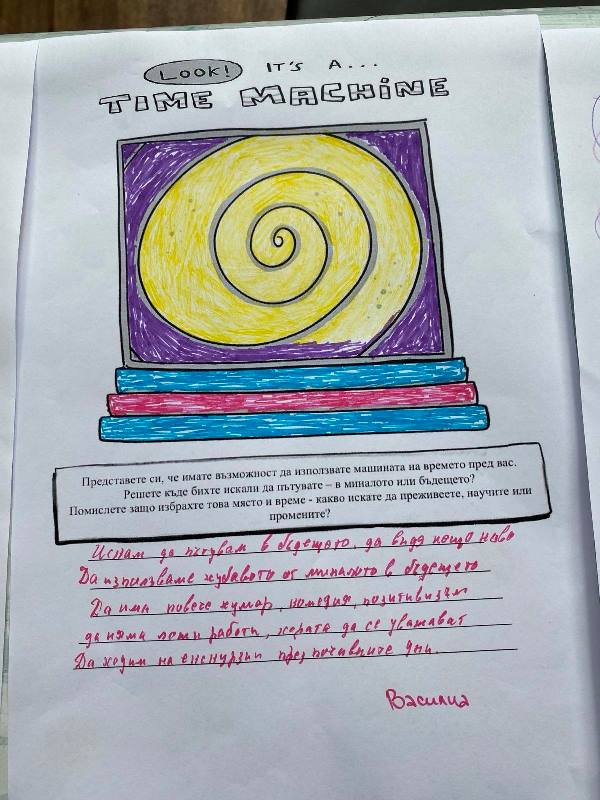 LOOK! IT'S A...
TIME MACHINE
Представете си, че имате възможност да използвате машината на времето пред вас.
Решете къде бихте искали да пътувате – в миналото или бъдещето?
Помислете защо избрахте това място и време - какво искате да преживеете, научите или
промените?
Искам да пътувам в бъдещето, да видя нещо ново
Да използваме хубавото от миналото в бъдещето
Да има повече хумор, комедия, позитивизъм
да няма лоши работи, хората да се уважават
Да ходим на екскурзии през почивните дни.
Василка